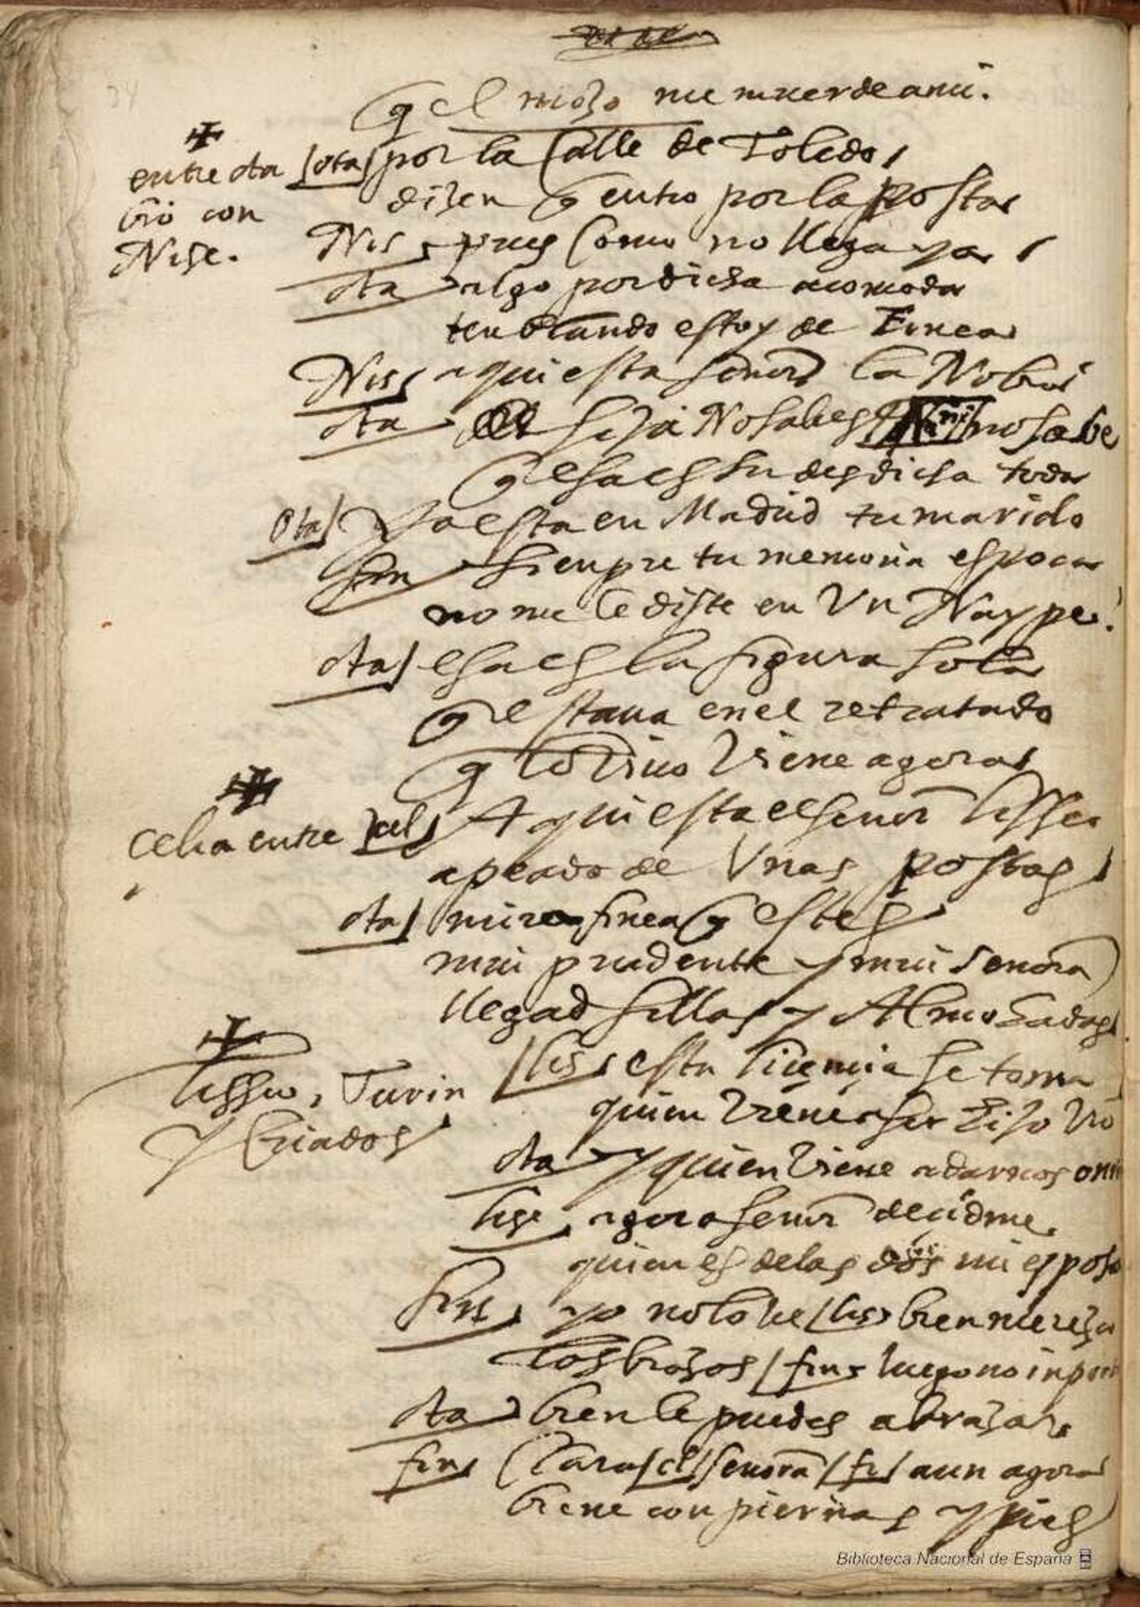 q el mozo me muerde a mi.
✠
entre ota
bio con
Nise.
ota por la Calle de Toledo
dizen q entro por la posta
Nis pues Como no llega ya
ota algo por dicha acomoda
tenblando estoy de Finea
Nis aqui esta señor la Nobia
ota hija No sabes no sabe
q esa es su desdicha toda
Ota Ya esta en Madrid tu marido
fin sienpre tu memoria es poca
no me le diste en Vn Naype?
ota esa es la figura sola
q estaua en el retratado
q lo Viuo Viene agora
✠
Celia entre
cel Aqui esta el señor lisseo
apeado de Vnas postas
ota mira finea q estes
mui prudente y mui señora
llegad sillas y Almohadas
✠
lisseo, Turin
y Criados
lis esta liçençia se toma
quien Viene a ser hijo Vro
ota y quien Viene a darnos onra
lise agora señor deçidme
quien es de las dos mi esposa
fine yo no lo ve lis bien mereza
los brazos fin luego no inporta
ota bien le puedes abrazar
fin Clara cl señora fi aun agora
biene con piernas y pies
Biblioteca Nacional de España